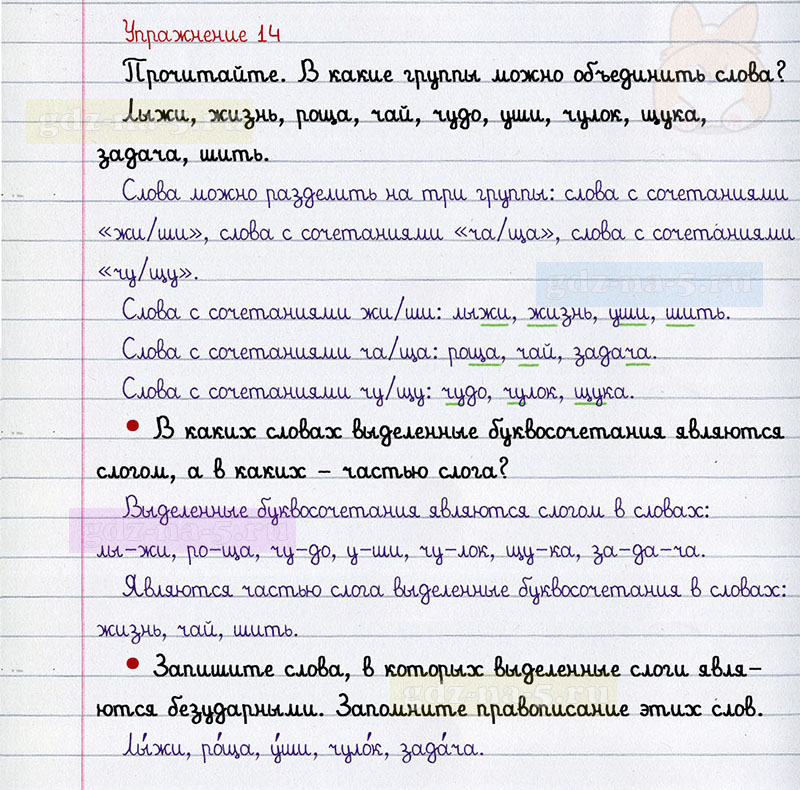 Упражнение 14
Прочитайте. В какие группы можно объединить слова?
Лыжи, жизнь, роща, чай, чудо, уши, чулок, щука,
gdz-na-5.ru
задача, шить.
Слова можно разделить на три группы: слова с сочетаниями
«жи/ши», слова с сочетаниями «ча/ща», слова с сочетаниями
«чу/щу».
gdz-na-5.ru
Слова с сочетаниями жи/ши: лыжи, жизнь, уши, шить.
Слова с сочетаниями ча/ща: роща, чай, задача.
Слова с сочетаниями чу/щу: чудо, чулок, щука.
• В каких словах выделенные буквосочетания являются
слогом, а в каких – частью слога?
Выделенные буквосочетания являются слогом в словах:
gdz-na-5.ru
лы-жи, ро-ща, чу-до, у-ши, чу-лок, щу-ка, за-да-ча.
Являются частью слога выделенные буквосочетания в словах:
жизнь, чай, шить.
• Запишите слова, в которых выделенные слоги явля-
gdz-na-5.ru
ются безударными. Запомните правописание этих слов.
Лы́жи, ро́ща, у́ши, чуло́к, зада́ча.